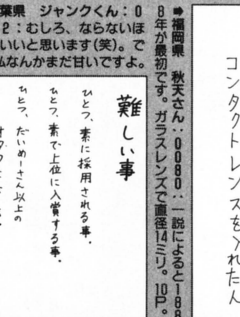 コンタクトレンズを入れた人
➡福岡県　秋天さん：0080：一説によると188
8年が最初です。ガラスレンズで直径14ミリ。10P。
葉県　ジャンクくん：0
2：むしろ、ならないほ
いいと思います(笑)。で
私なんかまだ甘いですよ。
難しい事
ひとつ、素に採用される事.
ひとつ、素で上位に入賞する事.
ひとつ、だいめーさん以上の